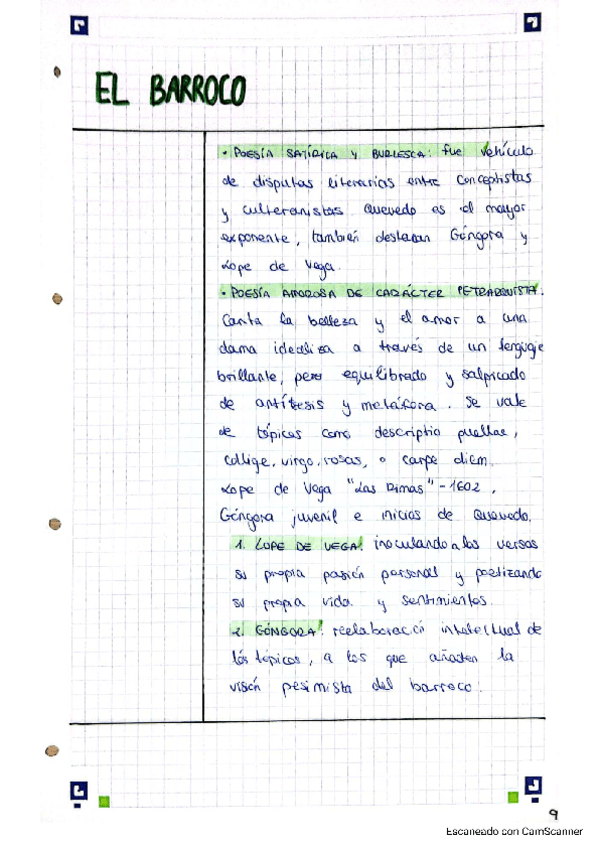 EL BARROCO
• POESÍA SATÍRICA Y BURLESCA: fue vehículo
de disputas literarias entre conceptistas
y culteranistas Quevedo es el mayor
exponente, también destacan Góngora y
Lope de Vega.
• POESÍA AMOROSA DE CARÁCTER PETRARQUISTA.
Canta la belleza y el amor a una
dama idealiza a través de un lenguaje
brillante, pero equilibrado y salpicado
de antítesis y metáfora. Se vale
de tópicos como descriptio puellae,
collige, virgo, rosas, o carpe diem.
Lope de Vega "Las Rimas" - 1602,
Góngora juvenil e inicios de Quevedo.
1. LOPE DE VEGA: inoculando a los versos
su propia pasión personal y poetizando
su propia vida y sentimientos.
2. GÓNGORA: reelaboració intelectual de
los tópicos, a los que añaden la
visión pesimista del barroco.
9
Escaneado con CamScanner